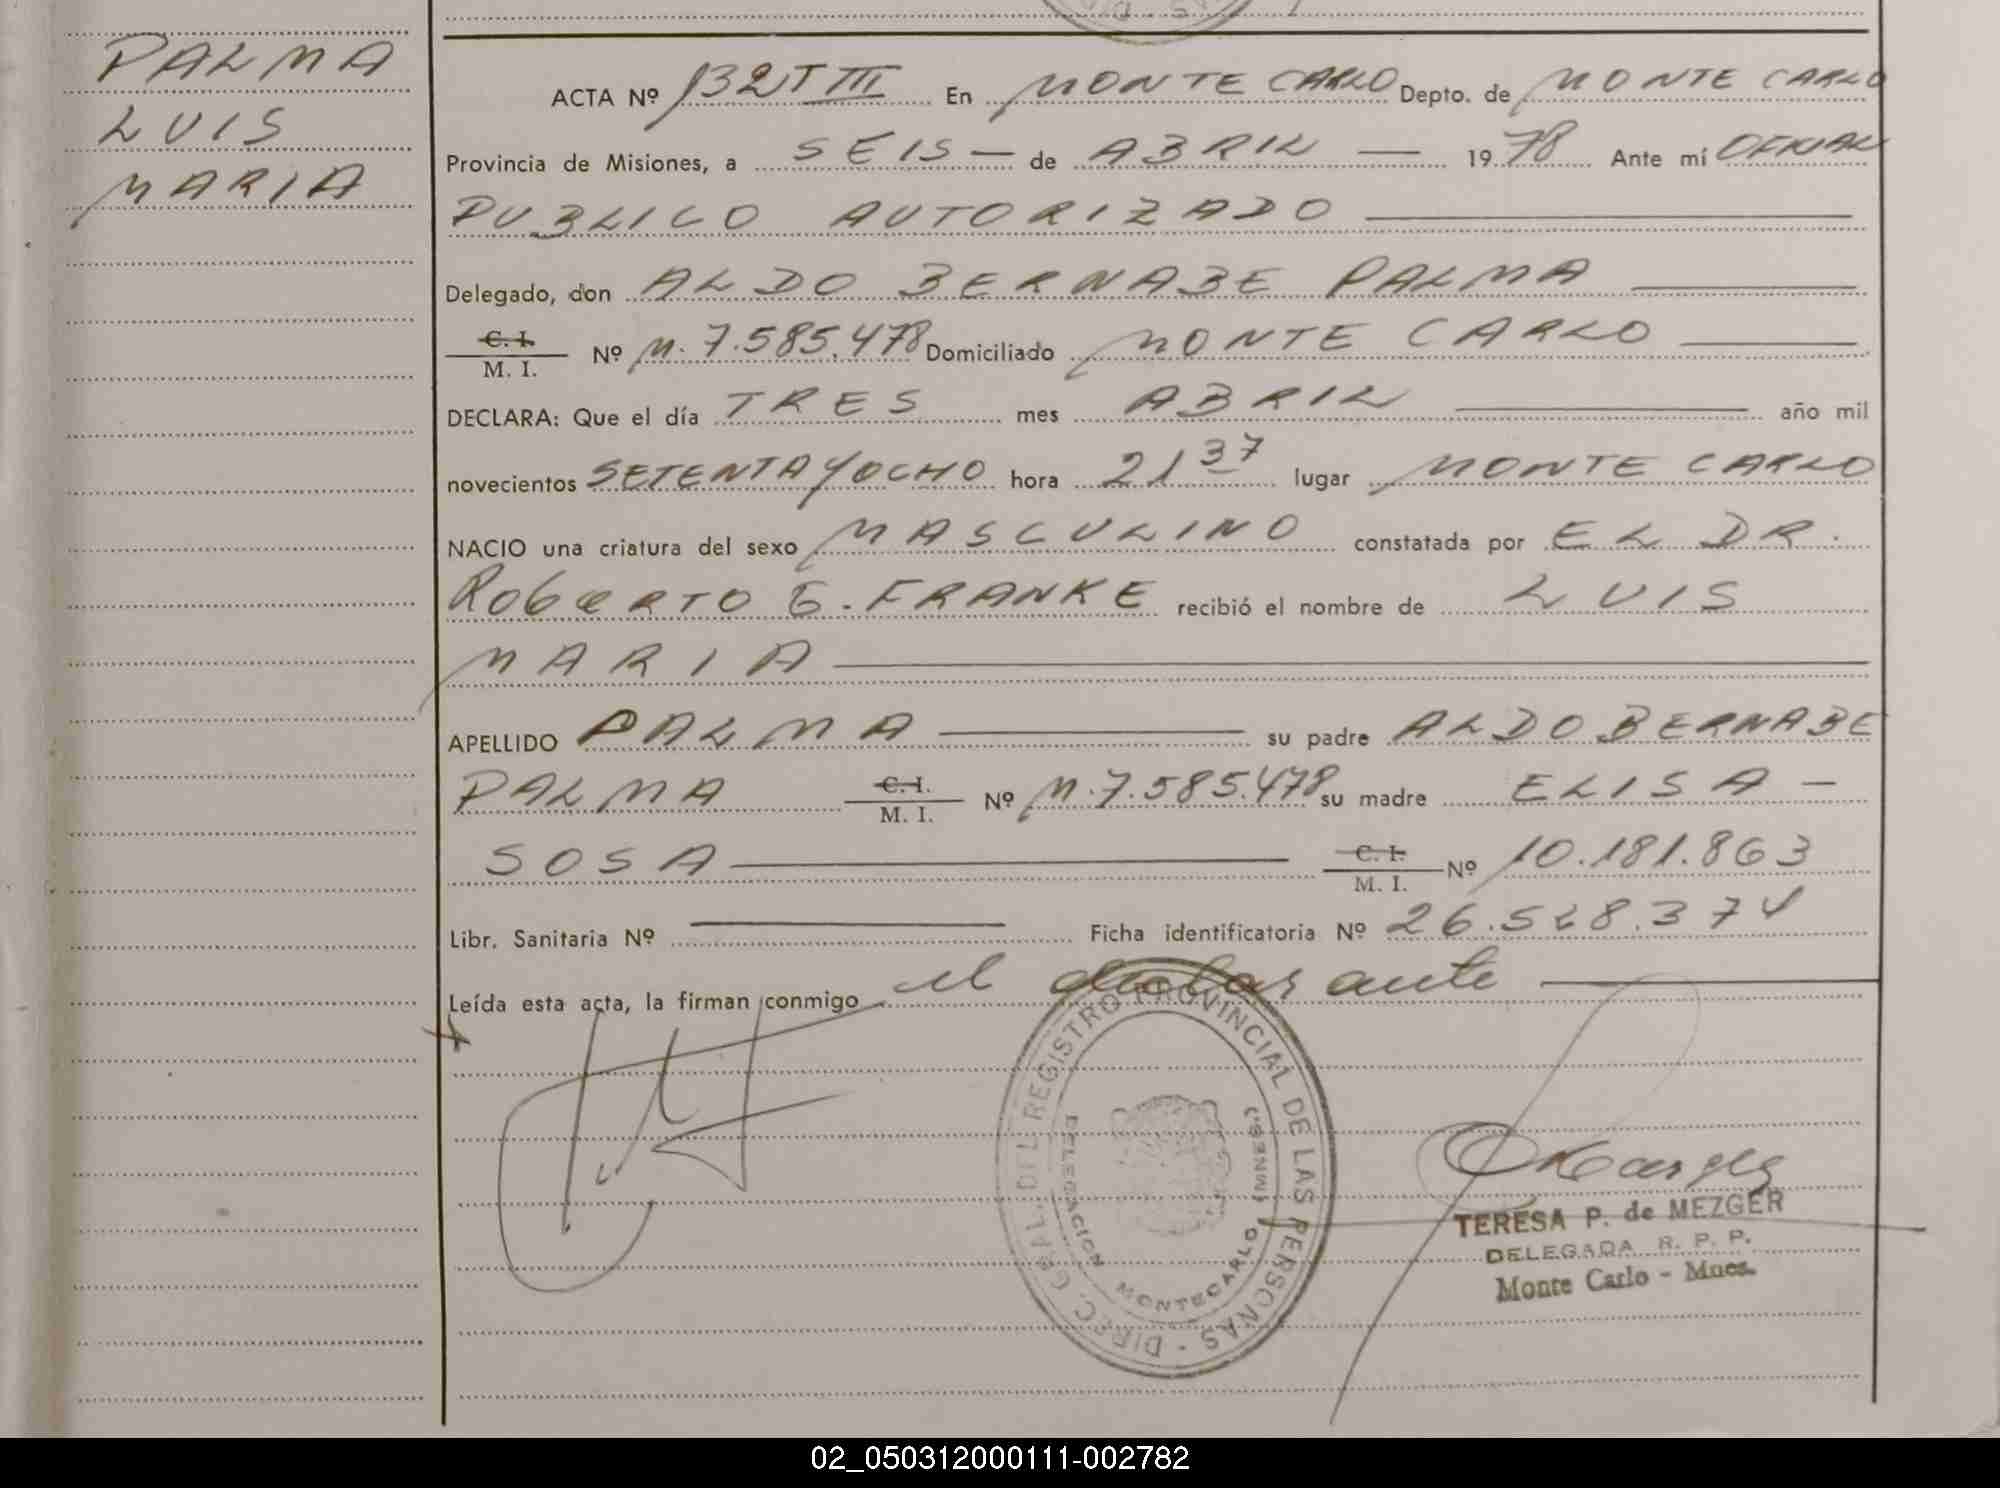 PALMA
LUIS
MARIA
ACTA Nº 132 T III En MONTE CARLO Depto. de MONTE CARLO
Provincia de Misiones, a SEIS — de ABRIL — 1978 Ante mí OFICIAL
PUBLICO AUTORIZADO
Delegado, don ALDO BERNABE PALMA
C. I.
M. I. Nº M. 7.585.478 Domiciliado MONTE CARLO
DECLARA: Que el día TRES mes ABRIL año mil
novecientos SETENTA Y OCHO hora 21 37 lugar MONTE CARLO
NACIO una criatura del sexo MASCULINO constatada por EL DR.
ROBERTO G. FRANKE recibió el nombre de LUIS
MARIA
APELLIDO PALMA su padre ALDO BERNABE
PALMA C. I. M. I. Nº M. 7.585.478 su madre ELISA —
SOSA C. I. M. I. Nº 10.181.863
Libr. Sanitaria Nº Ficha identificatoria Nº 26.528.374
Leída esta acta, la firman conmigo el declarante
DIREC. GRAL. DEL REGISTRO PROVINCIAL DE LAS PERSONAS -
DELEGACION MONTECARLO (MNES.)
TERESA P. de MEZGER
DELEGADA R. P. P.
Monte Carlo - Mnes.
02_050312000111-002782